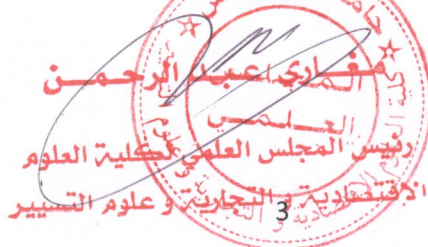 مغاري عبد الرحمن
المجلس
العلمي
رئيس المجلس العلمي لكلية العلوم
الاقتصادية و التجارية و علوم التسيير
3
كلية العلوم